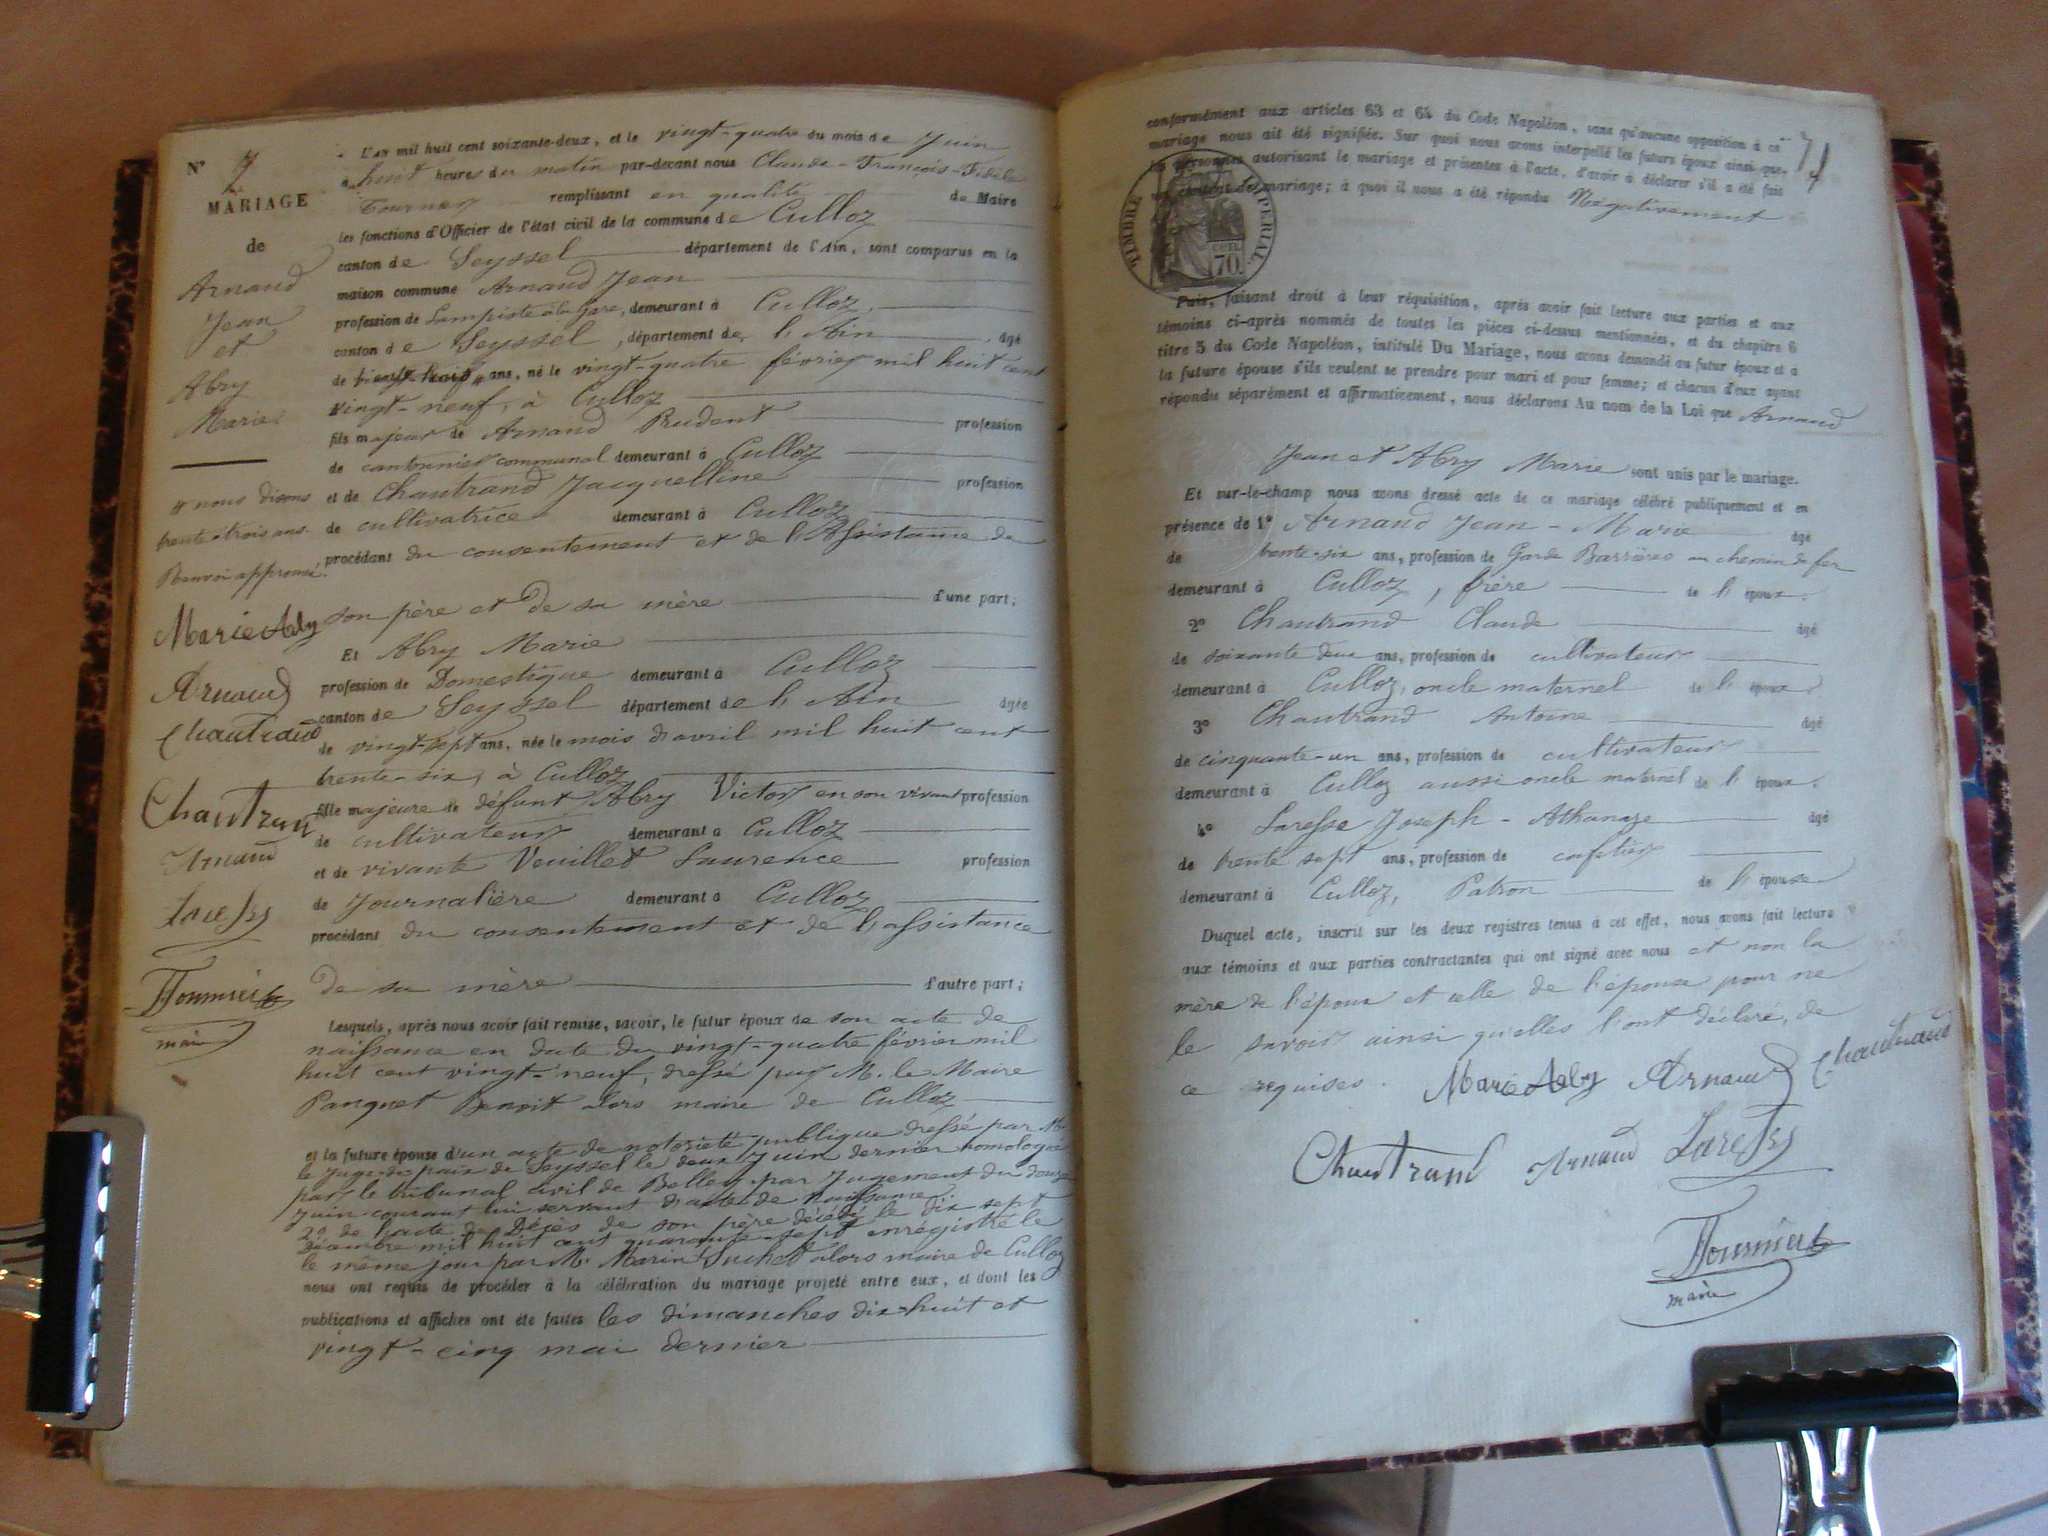 N° 7
MARIAGE
de
Arnaud
Jean
et
Abry
Marie
# nous disons
trente-trois ans.
Renvoi approuvé.
Marie Abry
Arnaud
Chautrand
Chautrand
Arnaud
Laresse
maire
L'an mil huit cent soixante-deux, et le vingt-quatre du mois de Juin
à huit heures du matin par-devant nous Claude-François-Fidèle
remplissant en qualité de Maire
les fonctions d'Officier de l'état civil de la commune de Culloz
canton de Seyssel département de l'Ain, sont comparus en la
maison commune Arnaud Jean
profession de Lampiste à la Gare, demeurant à Culloz,
canton de Seyssel, département de l'Ain, âgé
de ans, né le vingt-quatre février mil huit cent
vingt-neuf, à Culloz
fils majeur de Arnaud Prudent profession
de cantonnier communal demeurant à Culloz
et de Chautrand Jacquelline profession
de cultivatrice demeurant à Culloz
procédant du consentement et de l'Assistance de
son père et de sa mère d'une part;
Et Abry Marie
profession de Domestique demeurant à Culloz
canton de Seyssel département de l'Ain âgée
de vingt-sept ans, née le mois d'avril mil huit cent
trente-six, à Culloz
fille majeure de défunt Abry Victor en son vivant profession
de cultivateur demeurant à Culloz
et de vivante Veuillet Laurence profession
de Journalière demeurant à Culloz
procédant du consentement et de l'assistance
de sa mère d'autre part;
Lesquels, après nous avoir fait remise, savoir, le futur époux de son acte de
naissance en date du vingt-quatre février mil
huit cent vingt-neuf, dressé par M. le Maire
Panquet Benoit alors maire de Culloz
et la future épouse d'un acte de notoriété publique dressé par Mr
le Juge-de-paix de Seyssel le deux Juin dernier homologué
par le tribunal civil de Belley par Jugement du douze
Juin courant lui servant d'acte de naissance.
2° de l'acte de Décès de son père décédé le dix sept
décembre mil huit cent quarante-sept enrégistré le
le même jour par M. Marin Suchet alors maire de Culloz
nous ont requis de procéder à la célébration du mariage projeté entre eux, et dont les
publications et affiches ont été faites les dimanches dix-huit et
vingt-cinq mai dernier
71
conformément aux articles 63 et 64 du Code Napoléon, sans qu'aucune opposition à ce
mariage nous ait été signifiée. Sur quoi nous avons interpellé les futurs époux ainsi que
les personnes autorisant le mariage et présentes à l'acte, d'avoir à déclarer s'il a été fait
un contrat de mariage; à quoi il nous a été répondu Négativement
TIMBRE IMPÉRIAL
70 cen.
Puis, faisant droit à leur réquisition, après avoir fait lecture aux parties et aux
témoins ci-après nommés de toutes les pièces ci-dessus mentionnées, et du chapitre 6
titre 5 du Code Napoléon, intitulé Du Mariage, nous avons demandé au futur époux et à
la future épouse s'ils veulent se prendre pour mari et pour femme; et chacun d'eux ayant
répondu séparément et affirmativement, nous déclarons Au nom de la Loi que Arnaud
Jean et Abry Marie sont unis par le mariage.
Et sur-le-champ nous avons dressé acte de ce mariage célébré publiquement et en
présence de 1° Arnaud Jean-Marie âgé
de trente-six ans, profession de Garde Barrières au chemin de fer
demeurant à Culloz, frère de l'époux.
2° Chautrand Claude âgé
de soixante deux ans, profession de cultivateur
demeurant à Culloz, oncle maternel de l'époux
3° Chautrand Antoine âgé
de cinquante-un ans, profession de cultivateur
demeurant à Culloz aussi oncle maternel de l'époux.
4° Laresse Joseph-Athanaze âgé
de trente sept ans, profession de cafetier
demeurant à Culloz, Patron de l'épouse
Duquel acte, inscrit sur les deux registres tenus à cet effet, nous avons fait lecture
aux témoins et aux parties contractantes qui ont signé avec nous et non la
mère de l'époux et celle de l'épouse pour ne
le savoir ainsi qu'elles l'ont déclaré, de
ce requises. Marie Abry Arnaud Chautrand
Chautrand Arnaud Laresse
maire